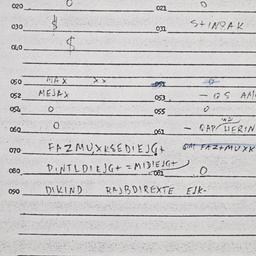 020 0 021 0
030 $ 031 S+INQAK
040 $
050 MAX XX 051 0
052 MEJAX 053 - QS AM
054 0 055 0
060 0 061 - QAP HERIN
070 FAZMUXKSEDIEJG+ FAZ+MUXK
080 DINTLDIEJG+ = MIDIEJG+ 081 0
090 DIKIND RAJBDIREXTE EJK-